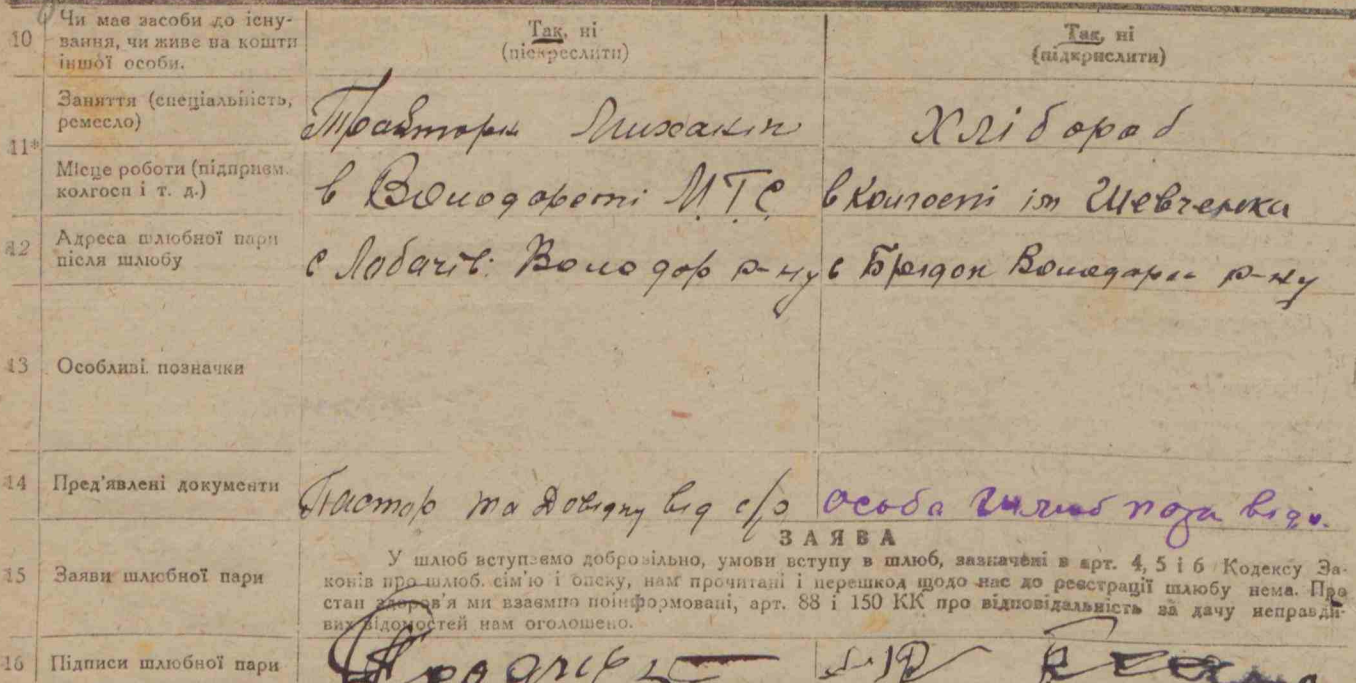 10 Чи має засоби до існу-
вання, чи живе на кошти
іншої особи.
Так, ні
(підкреслити)
Так, ні
(підкрислити)
11*
Заняття (спеціальність,
ремесло)
Хлібороб
Місце роботи (підприєм.
колгосп і т. д.)
в Володарсті М.Т.С.
в Колгоспі ім Шевченка
12 Адреса шлюбної пари
після шлюбу
с Лобачів. Володор р-ну
с Володарс р-ну
13 Особливі позначки
14 Пред'явлені документи
Паспор та Довідку від с/р
особа
ЗАЯВА
15 Заяви шлюбної пари
У шлюб вступаємо добровільно, умови вступу в шлюб, зазначені в арт. 4, 5 і 6 Кодексу За-
конів про шлюб. сім'ю і опеку, нам прочитані і перешкод щодо нас до реєстрації шлюбу нема. Про
стан здоров'я ми взаємно поінформовані, арт. 88 і 150 КК про відповідальність за дачу неправди-
вих відомостей нам оголошено.
16 Підписи шлюбної пари